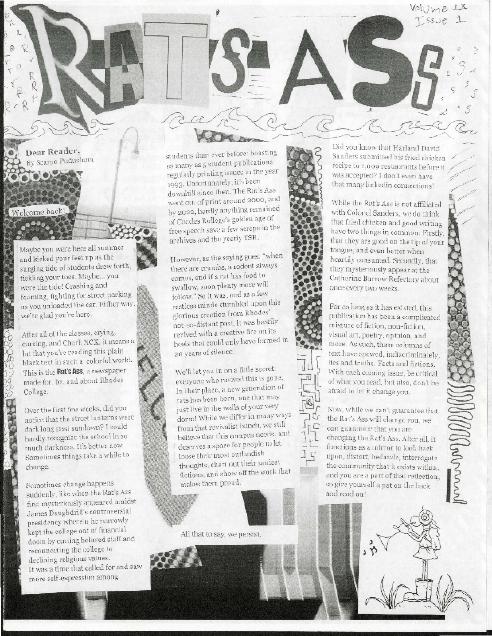 Volume IX
Issue 1
RAT'S ASS
Dear Reader,
Welcome back
Maybe you were here all summer
and kicked your feet up as the
surging tide of students drew forth,
tickling your toes. Maybe... you
were the tide! Crashing and
foaming, fighting for street parking
as you unloaded the car. Either way,
we're glad you're here.
After all of the classes, crying,
and Chuck it means a
lot that you're reading this plain
black text in such a colorful world.
This is the Rat's Ass, a newspaper
made for, by, and about Rhodes
College.
Over the first few weeks, did you
notice that the street lanterns were
dark long past sundown? I could
hardly recognize the school in so
much darkness. It's better now.
Sometimes things take a while to
change.
Sometimes change happens
suddenly, like when the Rat's Ass
first mysteriously appeared amidst
James Daughdrill's controversial
presidency where he narrowly
kept the college out of financial
doom by cutting beloved staff and
reconnecting the college to
declining religious values.
It was a time that called for and saw
more self-expression among
students than ever before: boasting
as many as 5 student publications
regularly printing issues in the year
1993. Unfortunately, it's been
downhill since then. The Rat's Ass
went out of print around 2000, and
by 2020, hardly anything remained
of Rhodes College's golden age of
free speech save a few scraps in the
archives and the yearly
However, as the saying goes, "when
there are crumbs, a rodent always
comes, and if a rat has food to
swallow, soon plenty more will
follow." So it was, and as a few
ratlings stumbled upon this
glorious creation from Rhodes'
not-so-distant past, it was hastily
revived with a creative fire in its
pests that could only have formed in
20 years of silence.
We'll let you in on a little secret:
everyone who revived this is gone.
In their place, a new generation of
rats has been born, one that may
just live in the walls of your very
dorm! While we differ in many ways
from that revivalist bunch, we still
believe that this campus needs, and
deserves a space for people to let
loose their most outlandish
thoughts, churn out their zaniest
fictions, and show off the work that
makes them proud.
All that to say, we persist.
Did you know that Harland David
Sanders submitted his fried chicken
recipe to 1,009 restaurants before it
was accepted? I don't even have
that many linkedin connections!
While the Rat's Ass is not affiliated
with Colonel Sanders, we do think
that fried chicken and good writing
have two things in common. Firstly,
that they are good on the tip of your
tongue, and even better when
heartily consumed. Secondly, that
they mysteriously appear at the
Catherine Burrow Refectory about
once every two weeks.
For as long as it has existed, this
publication has been a complicated
mixture of fiction, non-fiction,
visual art, poetry, opinion, and
more. As such, these columns of
text have spewed, indiscriminately,
lies and truths. Facts and fictions.
With each coming issue, be critical
of what you read, but also, don't be
afraid to let it change you.
Now, while we can't guarantee that
the Rat's Ass will change you, we
can guarantee that you are
changing the Rat's Ass. After all, it
functions as a mirror to look back
upon, distort, and interrogate
the community that it exists within,
and you are a part of that reflection,
so give yourself a pat on the back
and read on!